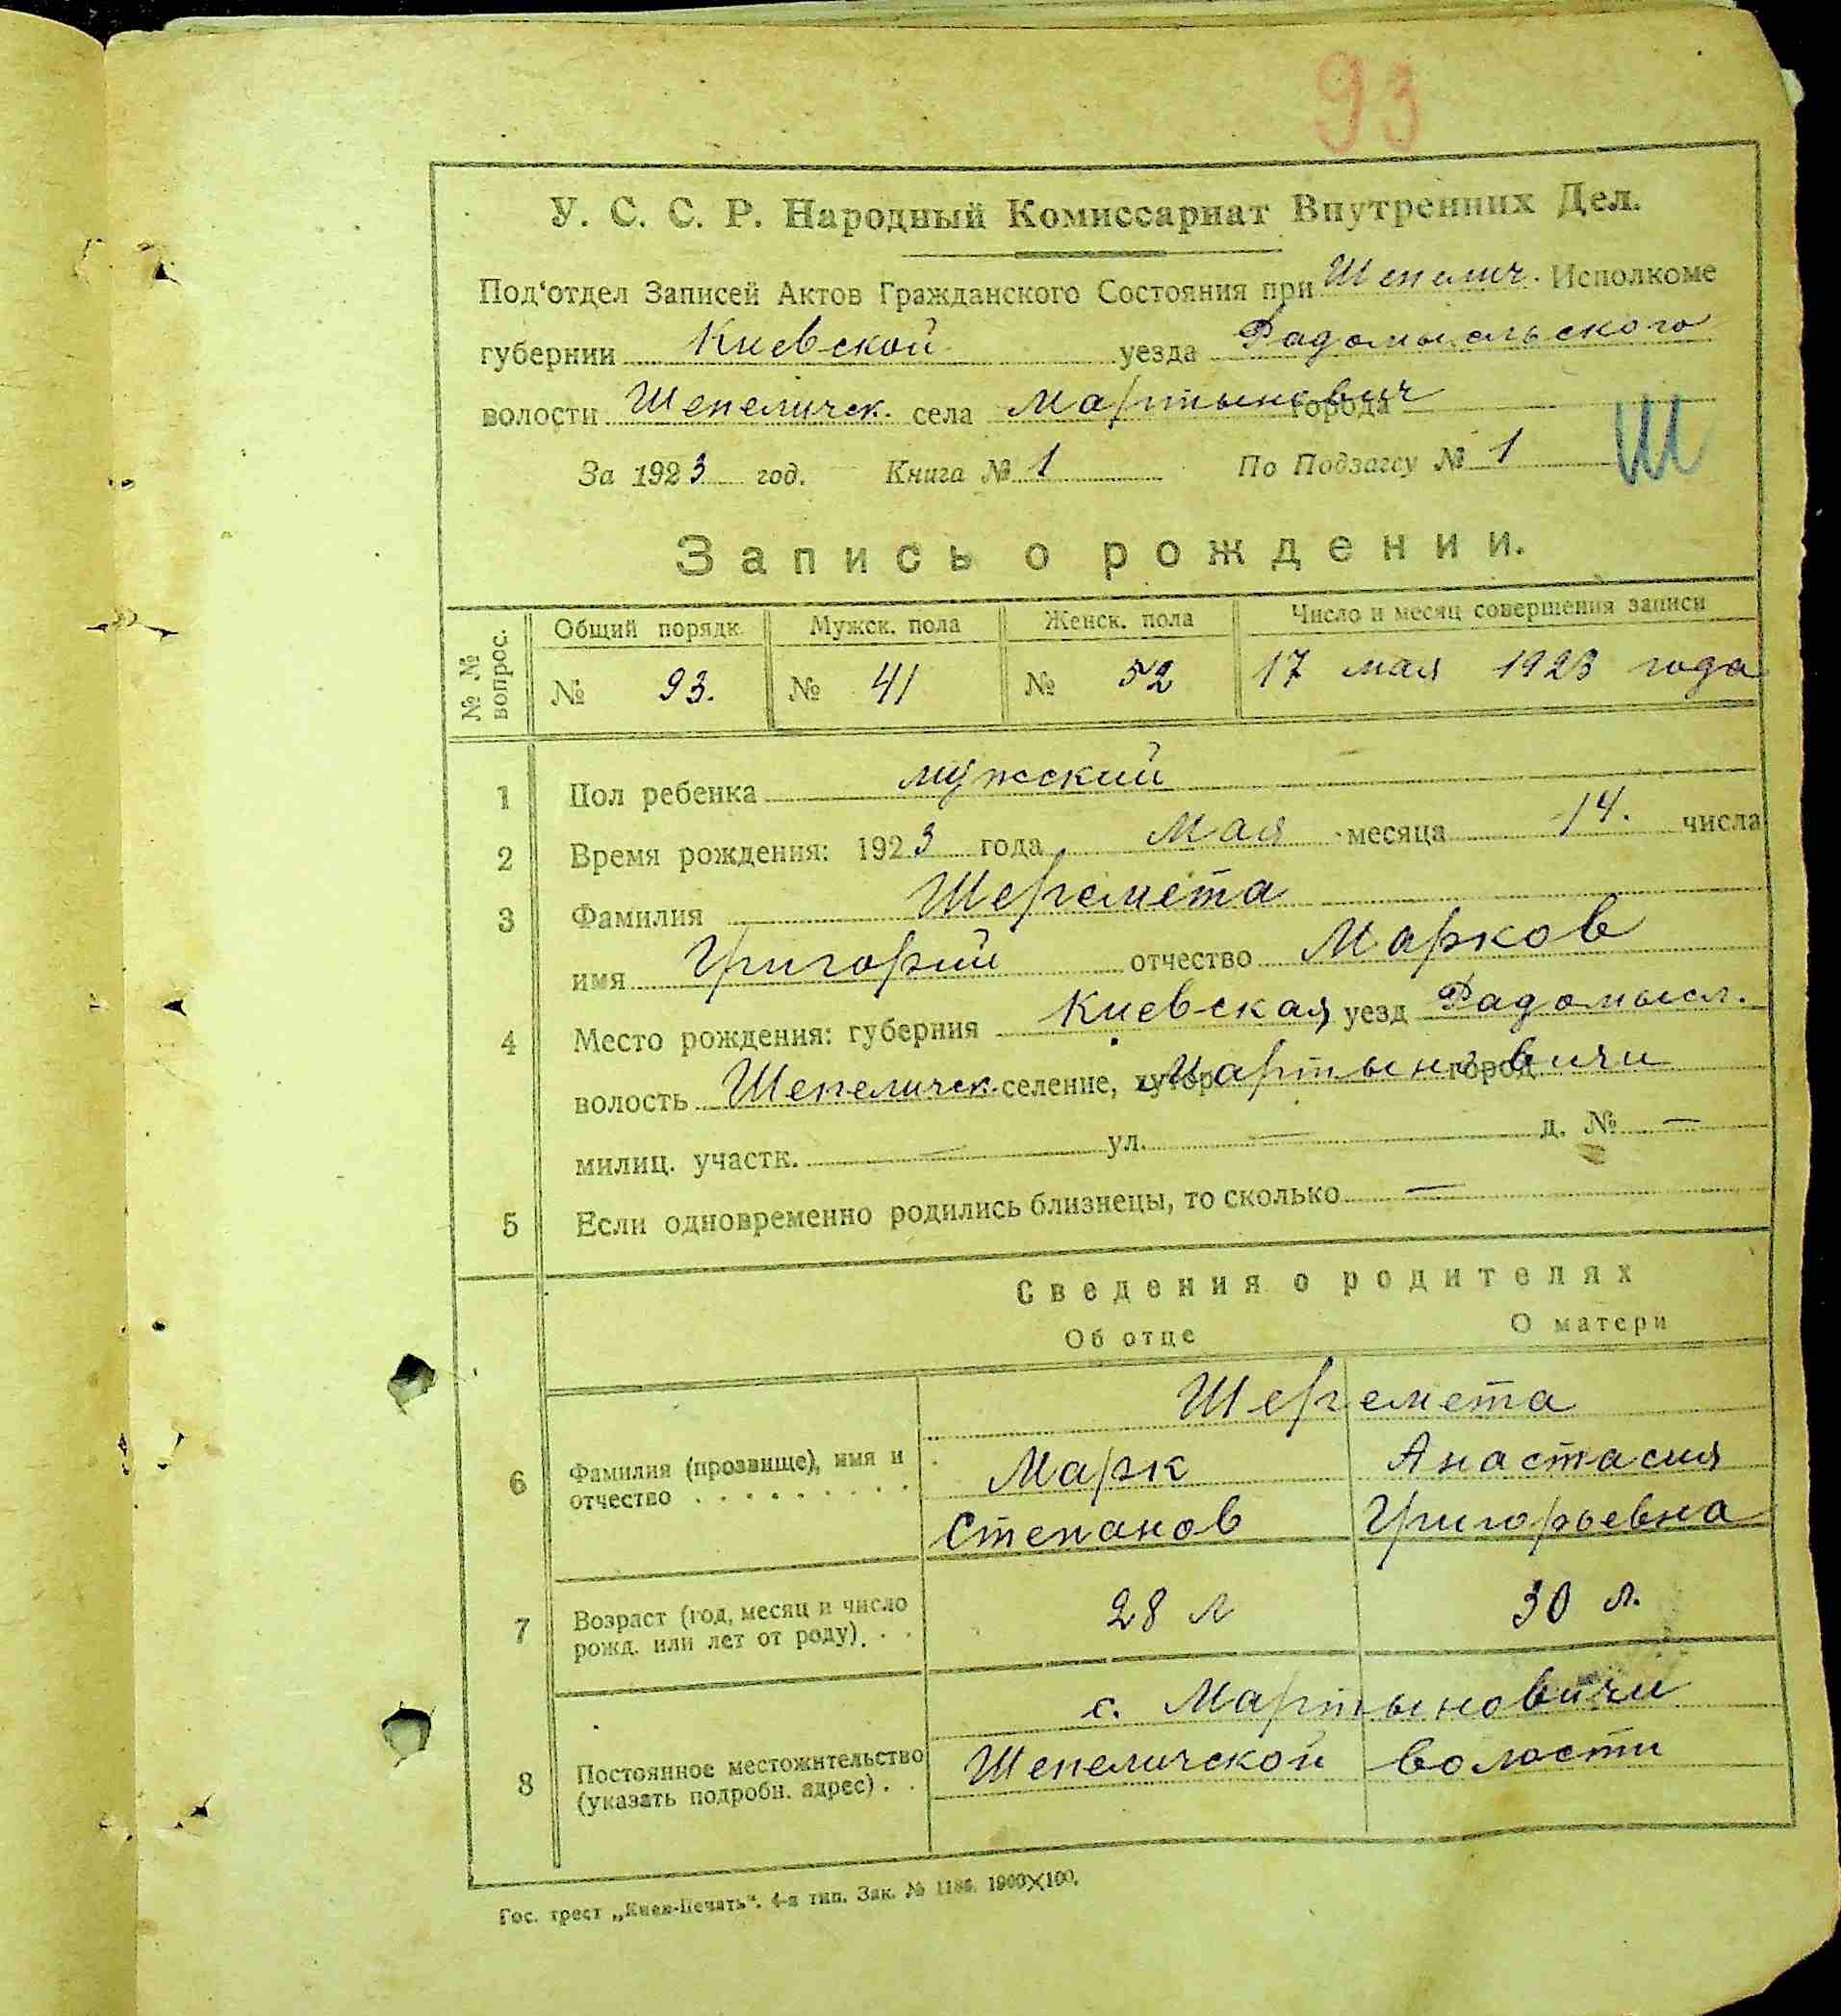 93
У. С. С. Р. Народный Комиссариат Внутренних Дел.
Под‘отдел Записей Актов Гражданского Состояния при Шепелич. Исполкоме
губернии Киевской уезда Радомысльского
волости Шепеличск. села Мартынович города —
За 1923 год. Книга № 1 По Подзагсу № 1
Ш
Запись о рождении.
№ № вопрос.
Общий порядк. Мужск. пола Женск. пола Число и месяц совершения записи
№ 93. № 41 № 52 17 мая 1923 года
1 Пол ребенка мужский
2 Время рождения: 1923 года Мая месяца 14. числа
3 Фамилия Шеремета
имя Григорий отчество Марков
4 Место рождения: губерния Киевская, уезд Радомысл.
волость Шепеличск. селение, хутор Мартыновичи город
милиц. участк. — ул. — д. № —
5 Если одновременно родились близнецы, то сколько —
Сведения о родителях
Об отце О матери
Шеремета
6 Фамилия (прозвище), имя и отчество . . . . . . . . . Марк Анастасия
Степанов Григорьевна
7 Возраст (год, месяц и число рожд. или лет от роду) . . . 28 л 30 л.
с. Мартыновичи
8 Постоянное местожительство (указать подробн. адрес) . . Шепеличской волости
Гос. трест „Киев-Печать“. 4-я тип. Зак. № 1186. 1000×100.